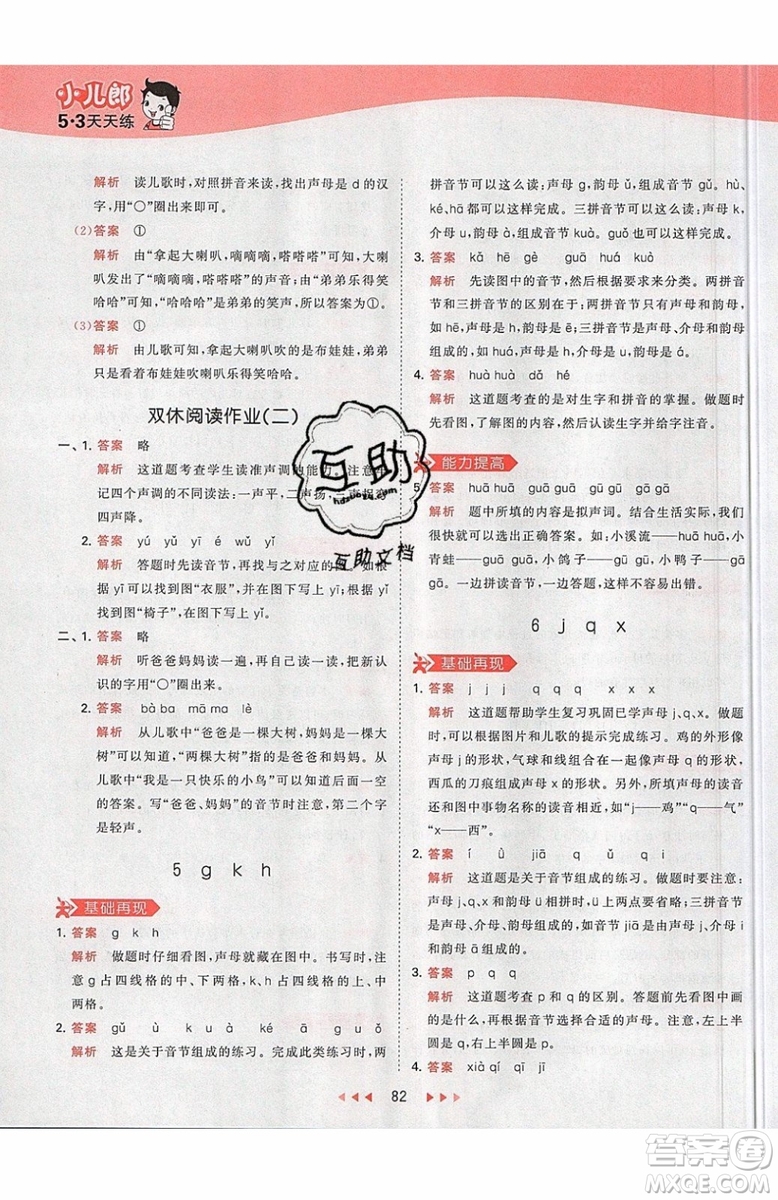 小儿郎
5·3天天练
解析 读儿歌时,对照拼音来读,找出声母是 d 的汉
字,用“○”圈出来即可。
(2)答案 ①
解析 由“拿起大喇叭,嘀嘀嘀,嗒嗒嗒”可知,大喇
叭发出了“嘀嘀嘀,嗒嗒嗒”的声音;由“弟弟乐得笑
哈哈”可知,“哈哈哈”是弟弟的笑声,所以答案为①。
(3)答案 ①
解析 由儿歌可知,拿起大喇叭吹的是布娃娃,弟弟
只是夸布娃娃吹喇叭吹得好,所以答案为①。
双休阅读作业(二)
一、1. 答案 略
解析 这道题考查学生读准声调地能力。注意牢
记四个声调的不同读法:一声平,二声扬,三声拐弯
四声降。
2. 答案 yú yǔ wū yī yǐ
解析 答题时先读音节,再与之对应的 根据
yī 可以知道图中画的是“衣服”,在图下写上 yī;根
据 yǐ 找到图“椅子”,在图下写上 yǐ。
二、1. 答案 略
解析 听爸爸妈妈读一遍,再读一读,把新认
识的字用“○”圈起来。
2. 答案 bà ba mā ma lè
解析 从儿歌中“爸爸是一棵大树,妈妈是一棵大
树”可以知道,“两棵大树”就是爸爸和妈妈。从从
从儿歌中“我是一只快乐的小鸟”可知道后面一空
的答案。写“爸爸、妈妈”的音节时注意,第二个字
是轻声。
5 g k h
基础再现
1. 答案 g k h
解析 做题时仔细看图,声母就藏在图中。书写时,注
意 g 占四线格的中、下两格,k、h 占四线格的上、中
两格。
2. 答案 gǔ ù kà ké ā g u ǒ
解析 这是关于音节组成的练习。完成此类练习时,两
拼音节可以这么读:声母 g,韵母 ǔ,组成音节 gǔ。hù、
ké、hā 等两拼音节也可以这样完成。三拼音节可以
这么读:声母 k,介母 u,韵母 à,组成音节
kuà。guǒ 可以这样完成。
3. 答案 kǎ hē guā huá kuò
解析 先读图中的音节,然后根据要求来分类。两拼音
节和三拼音节的区别在于:两拼音节只有声母和韵母,
如 hē,声母是 h,韵母是 ē;三拼音节有声母、介母和韵
母,如 huá,声母是 h,介母是 u,韵母是 á。
4. 答案 huà huà dǎ hé
解析 这道题考查的是对生字和音节的掌握。做题时
先看图,了解图的内容,然后认读生字并给字注音。
能力提高
答案 huā huā guā guā gū gū gā gā
解析 题中的内容是拟声词。结合生活实际,我们
很快就能选出正确答案。如:小溪流——huā huā
小青蛙——guā guā 小鸽子——gū gū 小鸭子——gā
gā。一边拼读音节,一边答题,这样不容易出错。
6 j q x
基础再现
1. 答案 j j j q q q x x x
解析 这道题帮助学生复习巩固已学声母 j、q、x。做题
时要根据图片和儿歌的提示完成练习。鸡的外形像
声母 j 的形状,气球和线组合在一起像声母 q 的形状,
西瓜的刀痕组成声母 x 的形状。另外,所填声母的读音
还和图中事物名称的读音近似,如“j——鸡”“q——气”
“x——西”。
2. 答案 í ǜ jiā q ià x ià
解析 这道题是关于音节组成的练习。做题时注意声
母 j、q、x 和单韵母 ü 相拼时,ü 上两点要省略;三拼音
节由声母、介母、韵母三部分组成,如音节 jiā 是由声母
j,介母 i,韵母 ā 组成的。
3. 答案 p q q p
解析 这道题考查 p 和 q 的区别。答题前先看图中画
的是什么,再根据音节选择合适的声母。注意,左上半
圆是 q,右上半圆是 p。
4. 答案 xià qí qī jī
82
互助
互助文档
答案圈
MXQE.COM